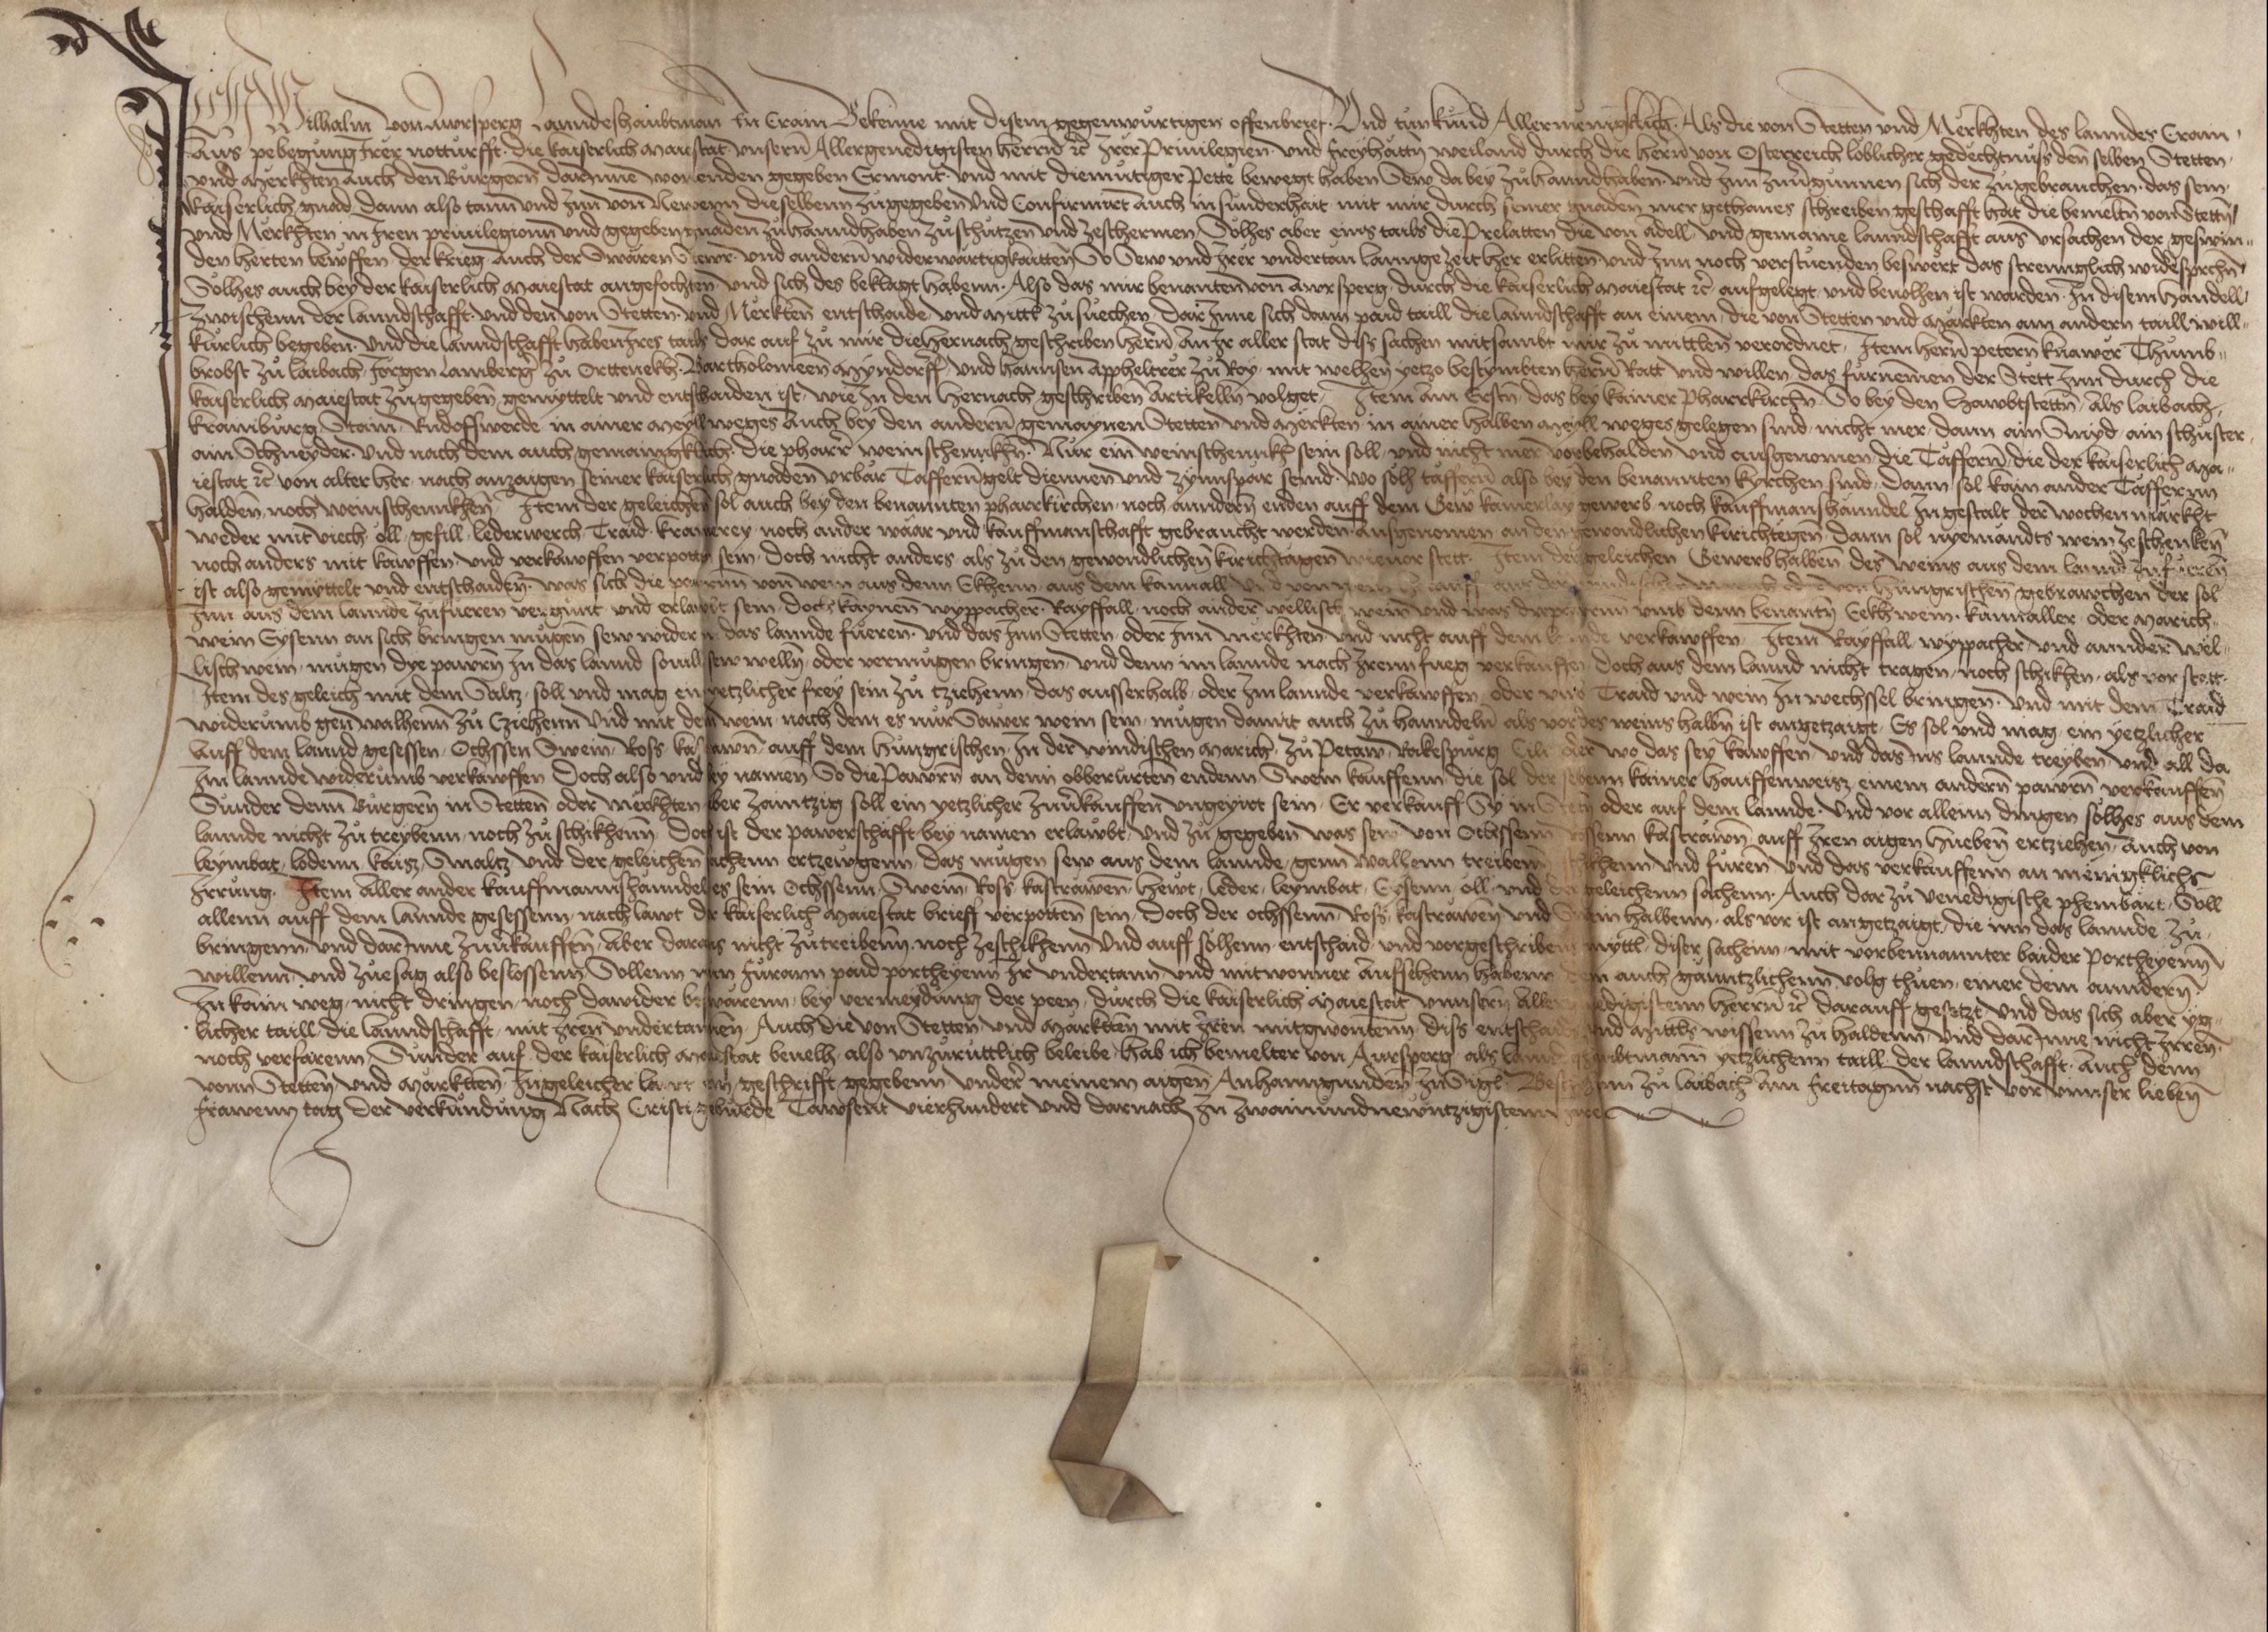 Ich Wilhalm von Awrsperg Lanndeshaubtman In Crain Bekenne mit disem gegenwurtigen offenbrief. Vnd tun kund Allermenigklich. Als die von Stetten vnd Merkhten des lanndes Crain
Aus pebegung Irer notturfft. die kaiserlich Maiestat vnsern Allergenedigisten herrn etc Irer Priuilegien. vnd freyhaittn weiland durch die herrn von Osterreich loblicher gedechtnuss den selben Stetten.
vnd Merkhten auch den Burgern darInne wonenden gegeben Ermont. vnd mit diemutiger Pette bewegt haben Sew dabey zu hanndhaben. vnd Inn zuuergunnen sich der zugebrauchen. das sein
kaiserlich gnad dann also tann vnd Inn von Newenn dieselbenn zugegeben Vnd Confirmirt auch in sunderhait mit mir durch seiner gnaden mer gethanes schreiben geschafft hat die bemeltn von Stettn
vnd Merkhten in Iren priuilegionn vnd gegeben gnaden zu hanndhaben zuschutzen vnd zeschermen. Solhes aber eins tails die Prelatten die von Adell. vnd gemaine lanndschafft aus vrsachen der geswin-
den herten lewffen der krieg auch der Swaren Stewr. vnd andern widerwartigkaitten So Sew vnd Irer vndertan lannge zeit her erlitten vnd Inn noch verstuenden beswert das strennglich widersprchn
Solhes auch bey der kaiserlich Maiestat angefochten vnd sich des beklagt habenn. Also das mir benanten von Awrsperg. durch die kaiserlich Maiestat etc aufgelegt. vnd beuolhen ist warden. In disem hanndell
zwischenn der lanndschafft. vnd den von Stetten. vnd Merkten entschaide. vnd Mittl zusuechen. Dar Inne sich dann paid taill die lanndschafft an einem. die von Stetten vnd Markten am andern taill will-
kurlich begeben. Vnd die lanndschafft haben Ires tails dar auf zu mir die hernach geschriben herrn an Ir aller stat diss sachen mitsambt mir zu mittlen verordnet. Item herrn petern knawer Thumb-
brobst zu laibach. Jorgen Lamberger zu Orttenekh. Bartholomeen Mynndorff. vnd hannsen Appheltrer zu Roy. mit welhen yetzo bestymbten herrn Ratt vnd willen das furnemen der Stett Inn durch die
kaiserlich Maiestat zugegeben gemyttelt vnd entschaiden ist. wie In den hernach geschriben Artikelln volget. Item am Erstn. das bey kainer Pharrkirchn. So bey den hawbtstettn. als laibach.
krainburg Stain. Rudolffswerde in ainer Meyll weges auch bey den andern gemaynen Stetten vnd Merkten. in ainer halben meyll weges gelegen sind. nicht mer. dann ain Smyd. ain schuster.
ain Schneyder. vnd nach dem auch gemainigklich. die pharrer weinschennkhn. Nur ein weinschennkh sein soll. vnd nicht mer vorbehalden vnd ausgenomen. die Taffern. die der kaiserlich Ma-
iestat etc von alter her. nach anzaigen seiner kaiserlich gnaden vrbar Tafferngelt diennen vnd zynnspar seind. wo solh taffern also bey den benannten kyrchen sind. dann sol kain ander Taffernn
halden. noch weinschennkhen. Item der geleichen sol auch bey den benannten pharrkirchen. noch anndern enden auff dem Gew kainerlay gewerb. noch kauffmanshanndel In gestalt der wochenmarkht
weder mit viech. oll. gefill. lederwerch. Traid. kramerey. noch ander waar vnd kauffmanschafft gebraucht werden. Ausgenomen an den gewondlichen kirichtegen. dann sol nyemandts wein zeschenken
noch anders mit kawffen. vnd verkawffen verpotten sein. Doch nicht anders. als zu den gewondlichen kirichtagen wie vor stett. Item der geleichen Gewerbhalben des weins aus dem lannd zufuern
ist also gemyttelt vnd entschaiden. was sich die pawrn von wein aus denn Ekhenn. aus dem kannall vnd von hungrischen gebrawchen der sol
Inn aus dem lannde zufueren vergunt vnd erlawbt sein. doch kaynen wyppacher. Rayffall. noch ander wellisch wein vnd was umb denn benantn Eekh wein. kannaller. oder Marich-
wein Eysenn an sich bringen mugen sew widern das lannde fueren. vnd das Inn Stetten. oder Inn merkhten. vnd nicht auff dem lannde verkawffen. Item Rayffall. wyppacher. vnd annder wel-
lisch wein. mugen dye pawrn In das lannd souill sew wellen. oder vermugen bringen. vnd denn im lannde nach Irenn fueg verkauffen. doch aus dem lannd nicht tragen. noch schikhen. als vor stett.
Item des geleich mit dem Saltz. soll vnd mag ein yetzlicher frey sein zu tziehenn. das ausserhalb. oder Im lannde verkawffen. oder vmb Traid vnd wein In wechssel bringen. vnd mit dem Traid
widerumb gen walhenn zu Cziehenn Vnd mit dem wein. nach dem es nur Sawer wein sein. mugen damit auch zu hanndeln als vor des weins halbn ist angetzaigt. Es sol vnd mag ein yetzlicher
auff dem lannd gesessen. Ochssen Swein. Ross kastrawn. auff dem hungrischen. In der windischen Marich. zu Petaw. Rakespurg. Cili oder wo das sey kawffen. vnd das ins lannde treyben. vnd all da
Im lannde widerumb verkawffen Doch also vnd bey namen So die Pawrn an denn obberurten endenn Swein kauffenn. die sol der selbenn kainer hauffenweisz. einem andern pawrn verkauffen
Sunder denn Burgern in Stetten oder Merkhten aber Zaintzig soll ein yetzlicher zuuerkauffen vngeyrrt sein. Er verkauff Sy in Stetn oder auf dem lannde. Vnd vor allenn dingen solhes aus dem
lannde nicht zu treybenn. noch zu schikhenn. Doch ist der pawerschafft bey namen erlawbt. vnd zu gegeben was sew von Othssenn Rossenn kastrawn auff Iren aigen hueben ertziehen. Auch von
leymbat. lodenn. kasz. Smaltz vnd der geleichen sachenn ertzewgenn. das mugen sew aus dem lannde. genn walhenn treibenn schikhenn vnd furen vnd das verkauffenn an menigklichs
Irrung. Item Aller ander kauffmannshanndel es sein Ochssenn. Swein. Ross. kastrawen. hewt. leder. leymbat. Eysenn. oll. vnd der geleichenn sachenn. Auch dar zu venedigische phennbart. Soll
allenn auff dem lannde gesessenn. nach lawt der kaiserlich Maiestat brieff verpotten sein. Doch der ochssenn. Ross. kastrawen vnd Swein halbenn. als vor ist angetzaigt. die inn das lannde zu
bringenn. vnd darInne zuuerkauffen. Aber daraus nicht zutreibenn. noch zeschikhenn Vnd auff solhenn entschaid. vnd vorgeschriben myttl. diser sachenn. mit vorbenannter baider Portheyenn
willenn. vnd zuesag also beslossenn. Sollenn nun furann paid portheyenn Ir vndertann vnd mitwonner aufsehenn habenn. dem auch ganntzlichenn volg thuen. einer dem anndern
In kain weg. nicht dringen. noch dawider beswarenn. bey vermeydung der peen. durch die kaiserlich Maiestat vnnsern Allergenedigistenn herrn etc darauff gesetzt. Vnd das sich aber yg-
licher taill. die lanndschafft. mit Iren vndertannen. Auch die von Stetten vnd Markten mit Iren mitgwontenn. diss entschaids vnd Mittls wissenn zu haldenn. vnd darInne nicht Irren.
noch verfarenn. Sunder auf der kaiserlich Maiestat beuelh. also vnzuruttlich beleibe. Hab ich bemelter von Awrsperg. als lanndshaubtmann yetzlichenn taill der lanndschafft. auch denn
vonn Stetten vnd Markten. In geleicher lawt ein geschrifft gegebenn vnder meinem aigen Anhanngunden Insigl. Beschehenn zu laibach am freitagnn nachst vor vnnser lieben
frawenn tag der verkundung Nach Cristi geburde Tawsent vierhundert vnd darnach In zwainundnewntzigistenn Jare